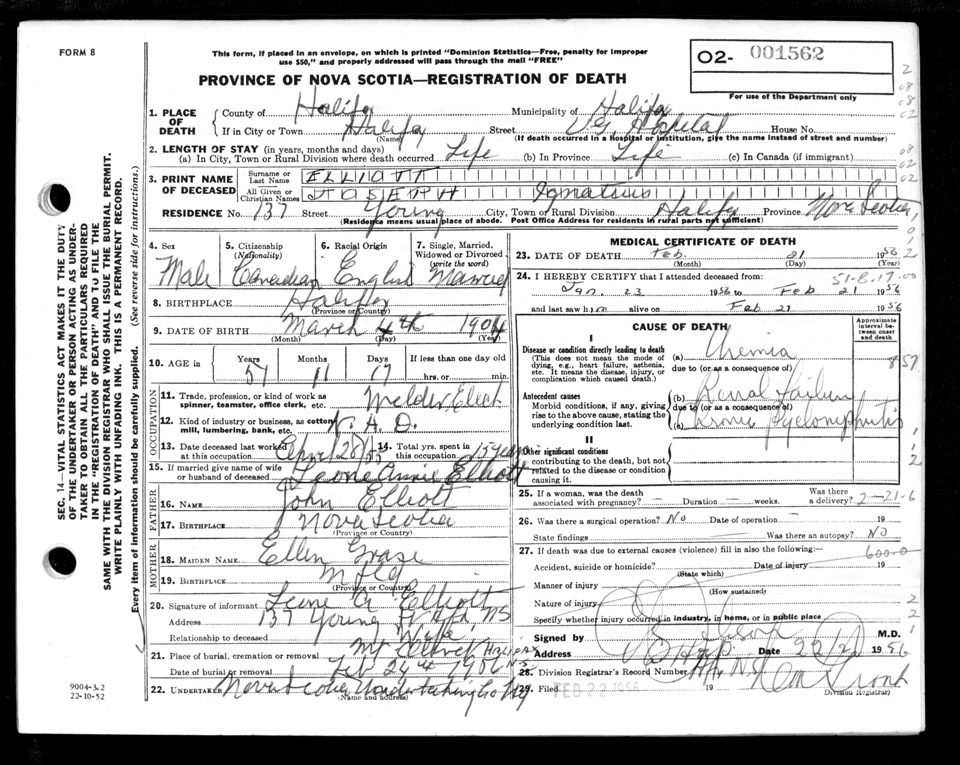 FORM 8
This form, if placed in an envelope, on which is printed "Dominion Statistics—Free, penalty for improper
use $50," and properly addressed will pass through the mail "FREE"
O2- 001562
For use of the Department only
PROVINCE OF NOVA SCOTIA—REGISTRATION OF DEATH
1. PLACE OF DEATH
County of Halifax Municipality of Halifax
If in City or Town Halifax Street V.G. Hospital House No.
(Name) (If death occurred in a hospital or institution, give the name instead of street and number)
2. LENGTH OF STAY (in years, months and days)
(a) In City, Town or Rural Division where death occurred Life (b) In Province Life (c) In Canada (if immigrant)
3. PRINT NAME OF DECEASED
Surname or Last Name ELLIOTT
All Given or Christian Names JOSEPH Ignatius
RESIDENCE No. 137 Street Young City, Town or Rural Division Halifax Province Nova Scotia
(Residence means usual place of abode. Post Office Address for residents in rural parts not sufficient)
4. Sex Male
5. Citizenship (Nationality) Canadian
6. Racial Origin English
7. Single, Married, Widowed or Divorced (write the word) Married
8. BIRTHPLACE Halifax
(Province or Country)
9. DATE OF BIRTH March 4th 1904
(Month) (Day) (Year)
10. AGE in Years 51 Months 11 Days 17 If less than one day old hrs. or min.
OCCUPATION
11. Trade, profession, or kind of work as spinner, teamster, office clerk, etc. Welder Elect
12. Kind of industry or business, as cotton mill, lumbering, bank, etc. N. A. D.
13. Date deceased last worked at this occupation April 28/55
14. Total yrs. spent in this occupation 15 years
15. If married give name of wife or husband of deceased Leone Annie Elliott
FATHER
16. NAME John Elliott
17. BIRTHPLACE Nova Scotia
(Province or Country)
MOTHER
18. MAIDEN NAME Ellen
19. BIRTHPLACE Nfld
(Province or Country)
20. Signature of informant Leone A Elliott
Address 137 Young St Hfx, NS
Relationship to deceased Wife
21. Place of burial, cremation or removal Mt Olivet Halifax NS
Date of burial or removal Feb 24th 1956
22. UNDERTAKER Nova Scotia Undertaking Co Hfx
(Name and address)
MEDICAL CERTIFICATE OF DEATH
23. DATE OF DEATH Feb. 21 1956
(Month) (Day) (Year)
24. I HEREBY CERTIFY that I attended deceased from: 51-8.17.00
Jan. 23 1956 to Feb 21 1956
and last saw him alive on Feb 21 1956
CAUSE OF DEATH
Approximate interval between onset and death
I
Disease or condition directly leading to death
(This does not mean the mode of dying, e.g., heart failure, asthenia, etc. It means the disease, injury, or complication which caused death.)
(a) Uremia
due to (or as a consequence of)
Antecedent causes
Morbid conditions, if any, giving rise to the above cause, stating the underlying condition last.
(b) Renal failure
due to (or as a consequence of)
(c) Chronic Pyelonephritis
II
Other significant conditions
contributing to the death, but not related to the disease or condition causing it.
25. If a woman, was the death associated with pregnancy? — Duration — weeks. Was there a delivery? 2-21-6
26. Was there a surgical operation? No Date of operation — 19
State findings — Was there an autopsy? NO
27. If death was due to external causes (violence) fill in also the following:— 600.0
Accident, suicide or homicide? Date of injury 19
(State which)
Manner of injury
(How sustained)
Nature of injury
Specify whether injury occurred in industry, in home, or in public place
Signed by M.D.
Address Hfx Date 22/2/ 1956
28. Division Registrar's Record Number
29. Filed FEB 22 1956 19
Division Registrar)
9004-3.2
22-10-52
SEC. 14 VITAL STATISTICS ACT MAKES IT THE DUTY
OF THE UNDERTAKER OR PERSON ACTING AS UNDER-
TAKER TO OBTAIN ALL THE PARTICULARS REQUIRED
IN THE "REGISTRATION OF DEATH" AND TO FILE THE
SAME WITH THE DIVISION REGISTRAR WHO SHALL ISSUE THE BURIAL PERMIT.
WRITE PLAINLY WITH UNFADING INK. THIS IS A PERMANENT RECORD.
Every item of information should be carefully supplied. (See reverse side for instructions.)